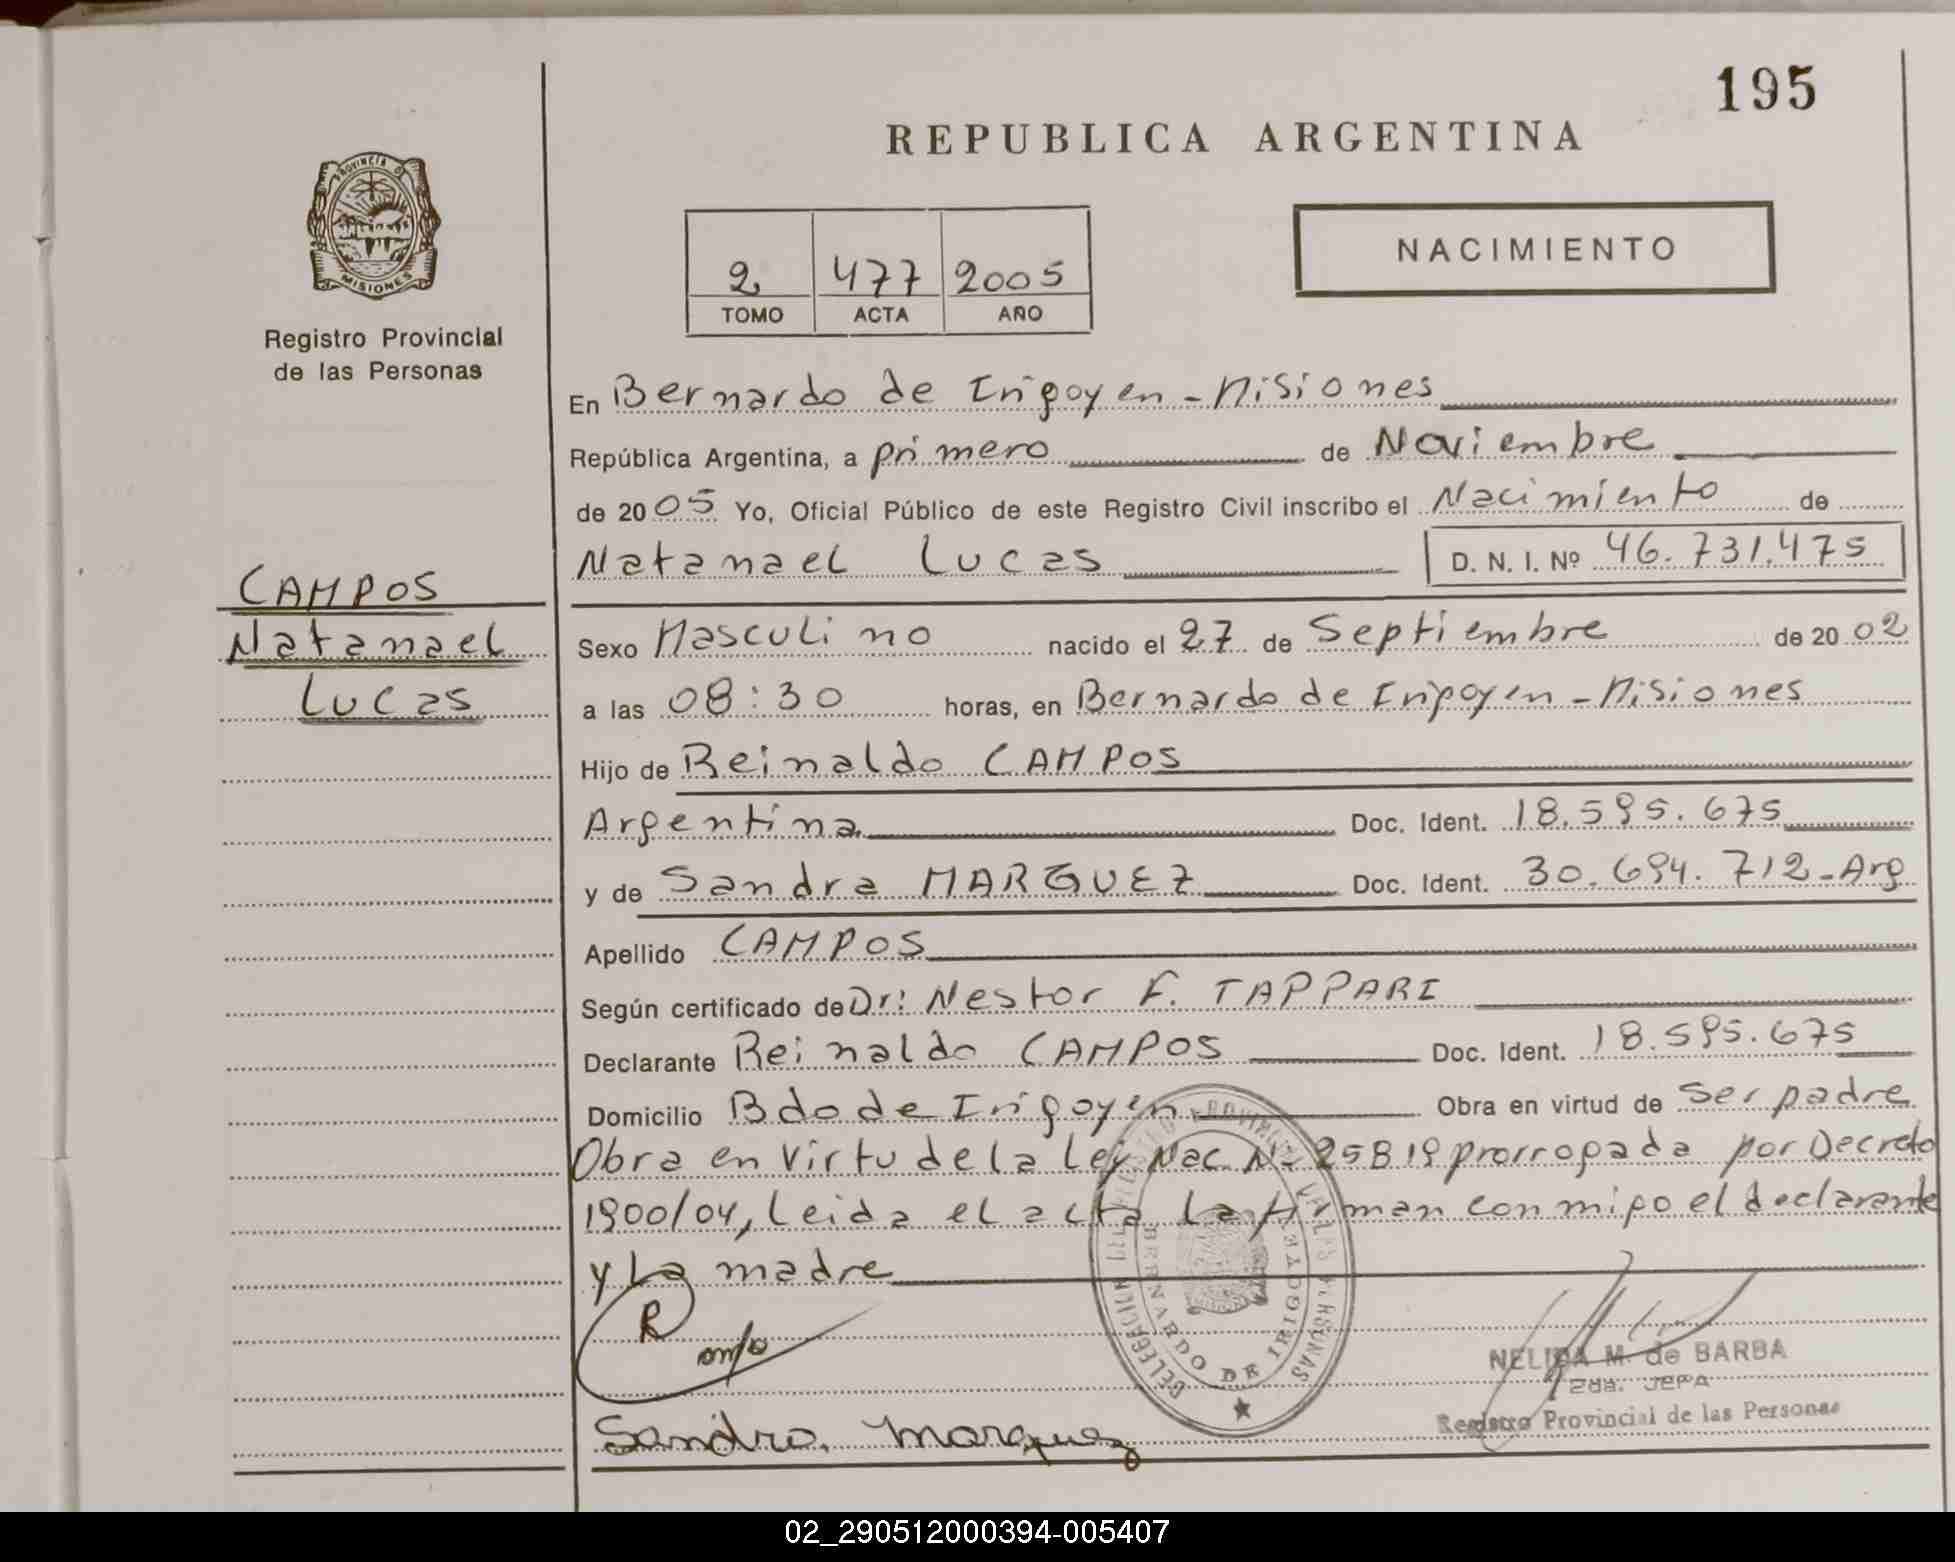 195
REPUBLICA ARGENTINA
PROVINCIA DE
MISIONES
Registro Provincial
de las Personas
NACIMIENTO
2 477 2005
TOMO ACTA AÑO
En Bernardo de Irigoyen - Misiones
República Argentina, a primero de Noviembre
de 2005 Yo, Oficial Público de este Registro Civil inscribo el Nacimiento de
Natanael Lucas D. N. I. Nº 46.731.475
CAMPOS
Natanael
Lucas
Sexo Masculino nacido el 27 de Septiembre de 2002
a las 08:30 horas, en Bernardo de Irigoyen - Misiones
Hijo de Reinaldo CAMPOS
Argentina Doc. Ident. 18.595.675
y de Sandra MARQUEZ Doc. Ident. 30.694.712 - Arg
Apellido CAMPOS
Según certificado de Dr: Nestor F. TAPPARI
Declarante Reinaldo CAMPOS Doc. Ident. 18.595.675
Domicilio Bdo de Irigoyen Obra en virtud de ser padre
Obra en Virtu de la Ley Nac. Nº 25819 prorrogada por Decreto
1900/04, Leida el acta La firman conmigo el declarante
y La madre
Sandra Marquez
DELEGACION DEL REGISTRO PROVINCIAL DE LAS PERSONAS
BERNARDO DE IRIGOYEN
NELIDA M. de BARBA
2da. JEFA
Registro Provincial de las Personas
02_290512000394-005407